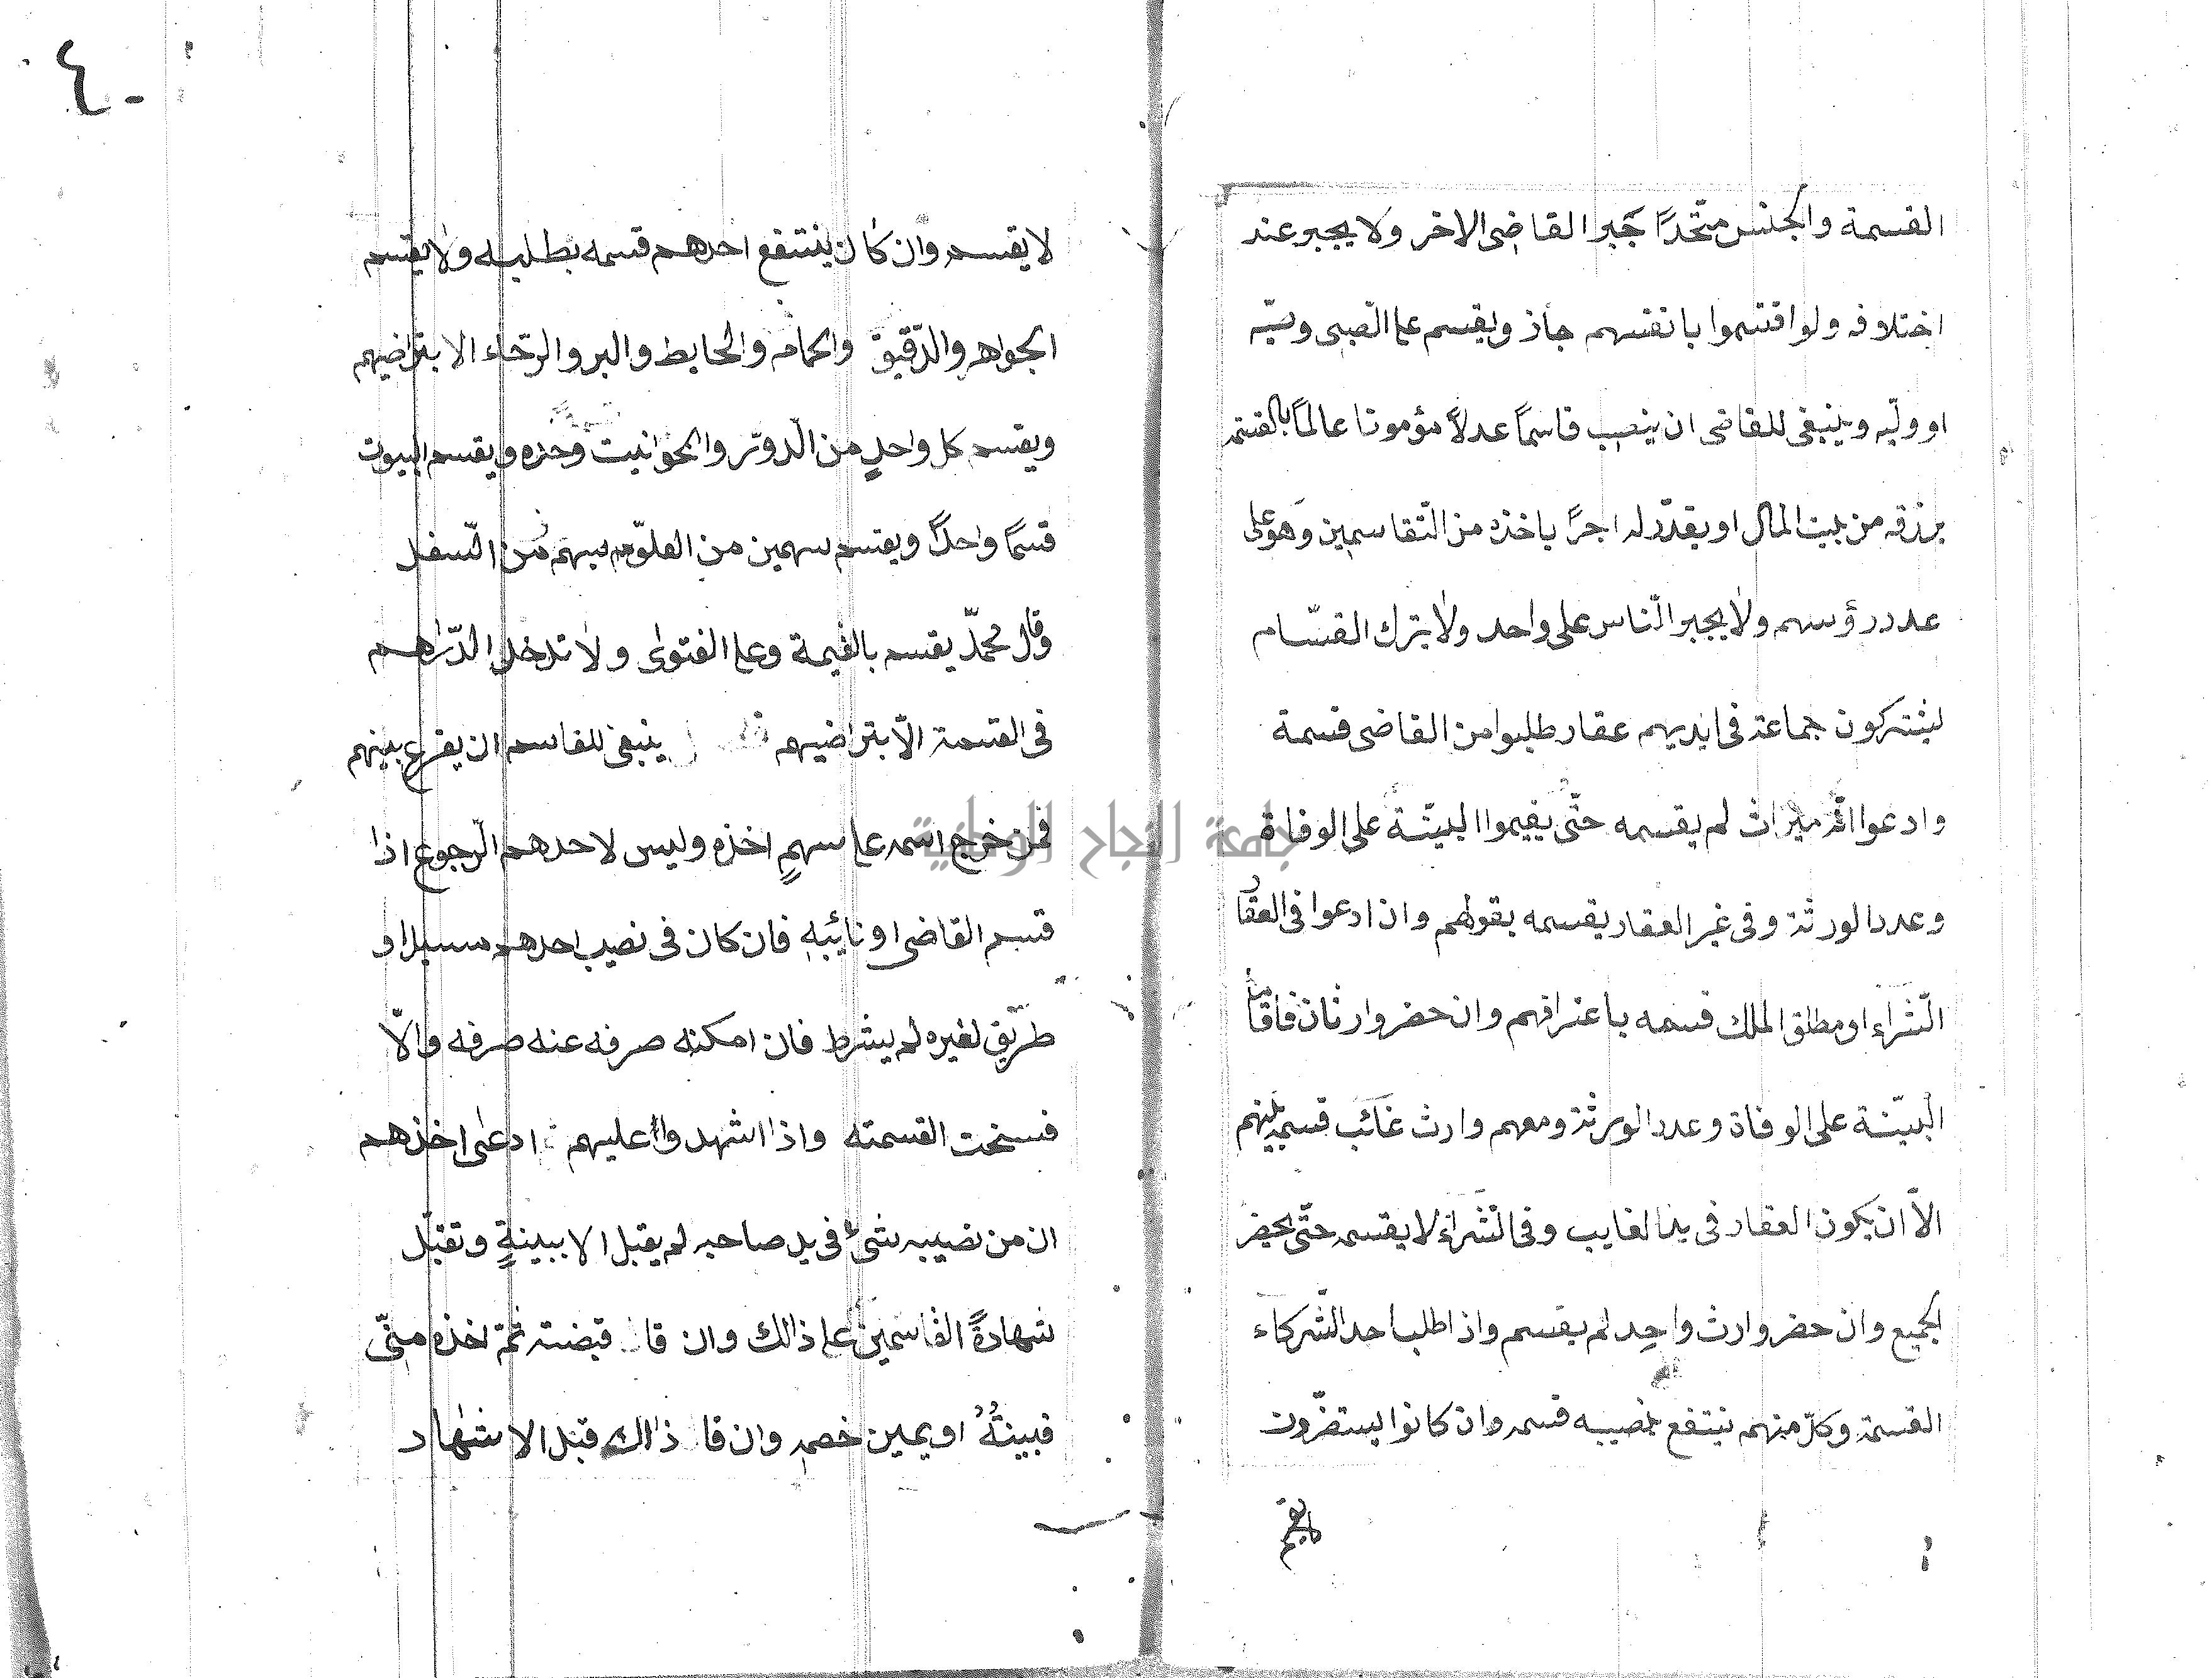 القسمة والجنس متّحدًا جَبر القاضى الاخر ولا يجبر عند
اختلافه ولو اقتسموا بانفسهم جاز ويقسم على الصّبى وصيّه
او وليّه وينبغى للقاضى ان ينصب قاسمًا عدلاً مؤمونا عالمًا بالقسمة
يرزقه من بيت المال او يقدّر له اجرًا ياخذه من التّقاسمين وَهو على
عدد رؤسهم ولا يجبر النّاس على واحد ولا يترك القسّام
ليشتركون جماعة فى ايديهم عقار طلبوا من القاضى قسمة
وادعوا انّه ميراث لم يقسمه حتّى يقيموا البيّنة على الوفاة
وعدد الورثة وفى غير العقار يقسمه بقولهم وان ادعوا فى العقار
الشّراء او مطلق الملك قسمه باعترافهم وان حضر وارثان فاقاما
البيّنة على الوفاة وعدد الورثة ومعهم وارث غائب قسم بينهم
الاّ ان يكون العقار فى يد الغايب وفى الشّراء لا يقسمه حتّى يحضر
الجميع وان حضر وارث واحِد لم يقسم واذا طلب احد الشّركاء
القسمة وكلّ منهم ينتفع بنصيبه قسمه وان كانوا يستضرّون
لا يقسم
لا يقسم وان كان ينتفع احدهم قسمه بطلبه ولا يقسم
الجواهر والدّقيق والحمام والحايط والبر والرّحاء الا بتراضيهم
ويقسم كل واحدٍ من الدّور والحوانيت وحده ويقسم البيوت
قسمًا واحدًا ويقسم سهمين من العلوّ بسهم من السّفل
وقال محمدّ يقسم بالقيمة وعليه الفتوى ولا تدخل الدّراهم
فى القسمة الاّ بتراضيهم ينبغى للقاسم ان يقرع بينهم
فمن خرج اسمه على سهمٍ اخذه وليس لاحدهم الرّجوع اذا
قسم القاضى او نائبه فان كان فى نصيب احدهم مسيل او
طريق لغيره لم يشرط فان امكنه صرفه عنه صرفه والاّ
فسخت القسمته واذا اشهدوا عليهم ادعى احدهم
ان من نصيبه شئ فى يد صاحبه لم يقبل الا ببينةٍ وتقبّل
شهادةً القاسمين على ذالك وان قال قبضته ثمّ اخذه منّى
فبينتُهُ او يمين خصمه وان قال ذالك قبل الاشهاد
٤٠
جامعة النجاح الوطنية